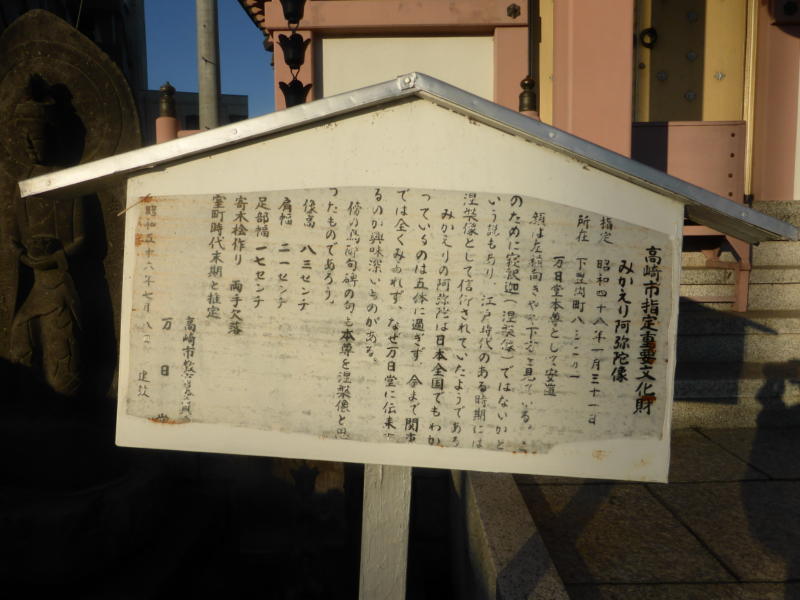 高崎市指定重要文化財
みかえり阿弥陀像
指定 昭和四十八年一月三十一日
所在 下豊岡町八
万日堂本尊として安置
顔は左横向きやや下方を見ている。
のために寝釈迦(涅槃像)ではないかと
いう説もあり、江戸時代のある時期には
涅槃像として信仰されていたようである
みかえりの阿弥陀は日本全国でもわか
っているのは五体に過ぎず、今まで関東
では全くみられず、なぜ万日堂に伝来
るのか興味深いものがある。
傍の鳥酔句碑の句も本尊を涅槃像と思
ったものであろう。
像高 八三センチ
肩幅 二一センチ
足部幅 一七センチ
寄木桧作り 両手欠落
室町時代末期と推定
高崎市教育委員
万日堂
昭和五十六年七月八日 建設